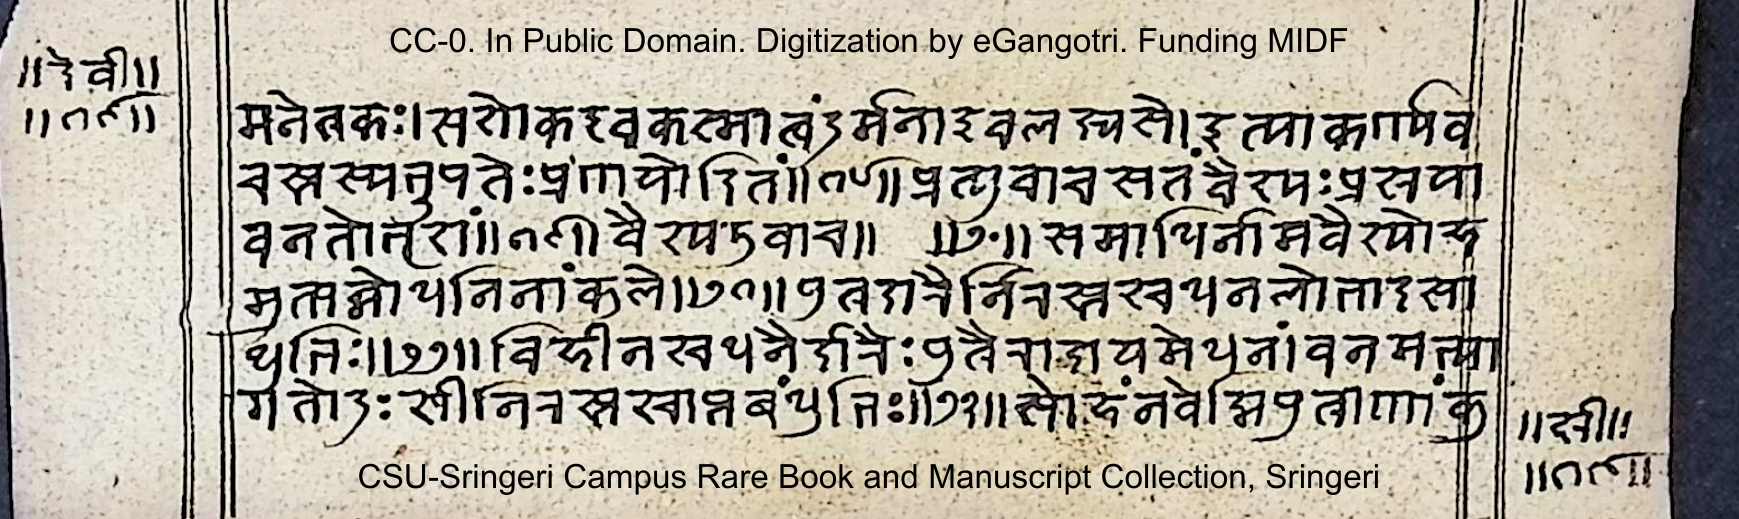 CC-0. In Public Domain. Digitization by eGangotri. Funding MIDF
॥देवी॥
मनेत्रकः।सशोकइवकस्मात्त्वंदुर्मनाइवलक्ष्यसे।इत्याकर्ण्यव
चस्तस्यभूपतेःप्रणयोदितं॥१८॥प्रत्युवाचसतंवैश्यःप्रश्रया
वनतोनृपं॥१९॥वैश्यउवाच॥ ॥२०॥समाधिर्नामवैश्योह
मुत्पन्नोधनिनांकुले॥२१॥पुत्रदारैर्निरस्तश्चधनलोभादसा
धुभिः॥२२॥विहीनश्चधनैर्दारैःपुत्रैरादायमेधनंवनमभ्या
गतोदुःखीनिरस्तश्चाप्तबंधुभिः॥२३॥सोहंनवेद्मिपुत्राणांकु
CSU-Sringeri Campus Rare Book and Manuscript Collection, Sringeri